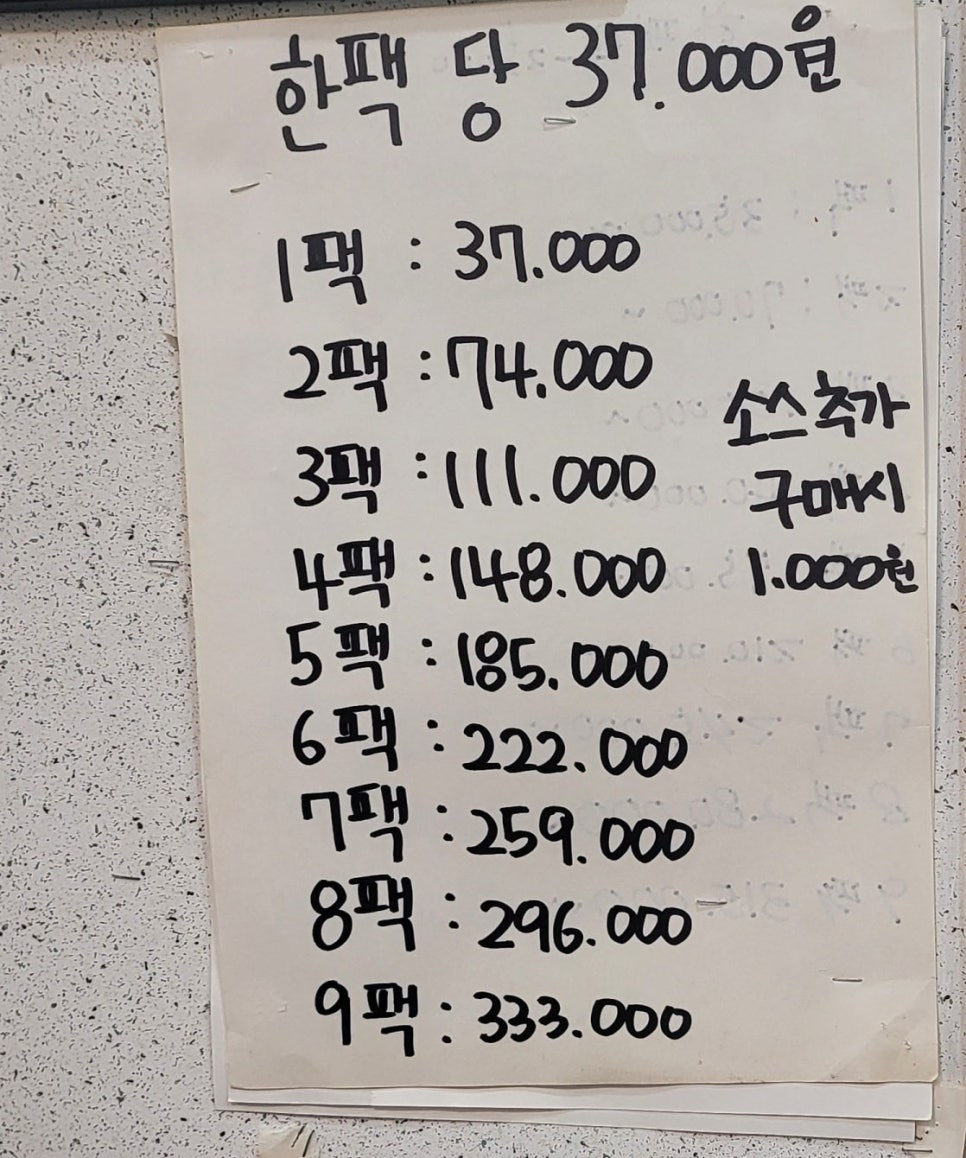 한팩 당 37.000원
1팩 : 37.000
2팩 : 74.000
3팩 : 111.000
4팩 : 148.000
5팩 : 185.000
6팩 : 222.000
7팩 : 259.000
8팩 : 296.000
9팩 : 333.000
소스추가
구매시
1.000원